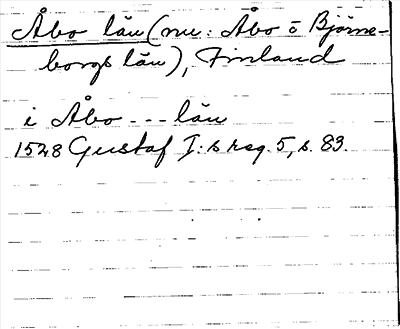 Åbo län (nu: Åbo o Björne-
borgs län), Finland
i Åbo --- län
1528 Gustaf I:s reg. 5, s. 83.